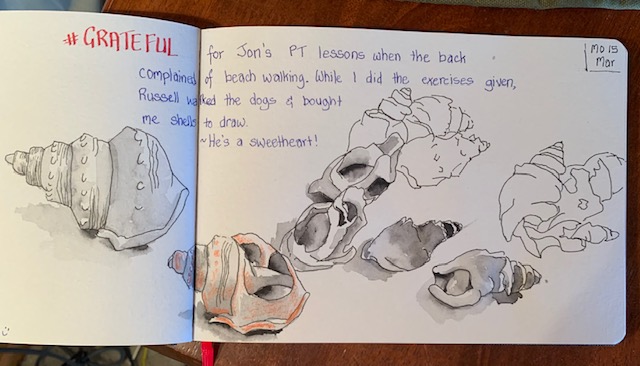 #GRATEFUL for Jon's PT lessons when the back
complained of beach walking. While I did the exercises given,
Russell walked the dogs & bought
me shells to draw.
~He's a sweetheart!
MO 15
Mar